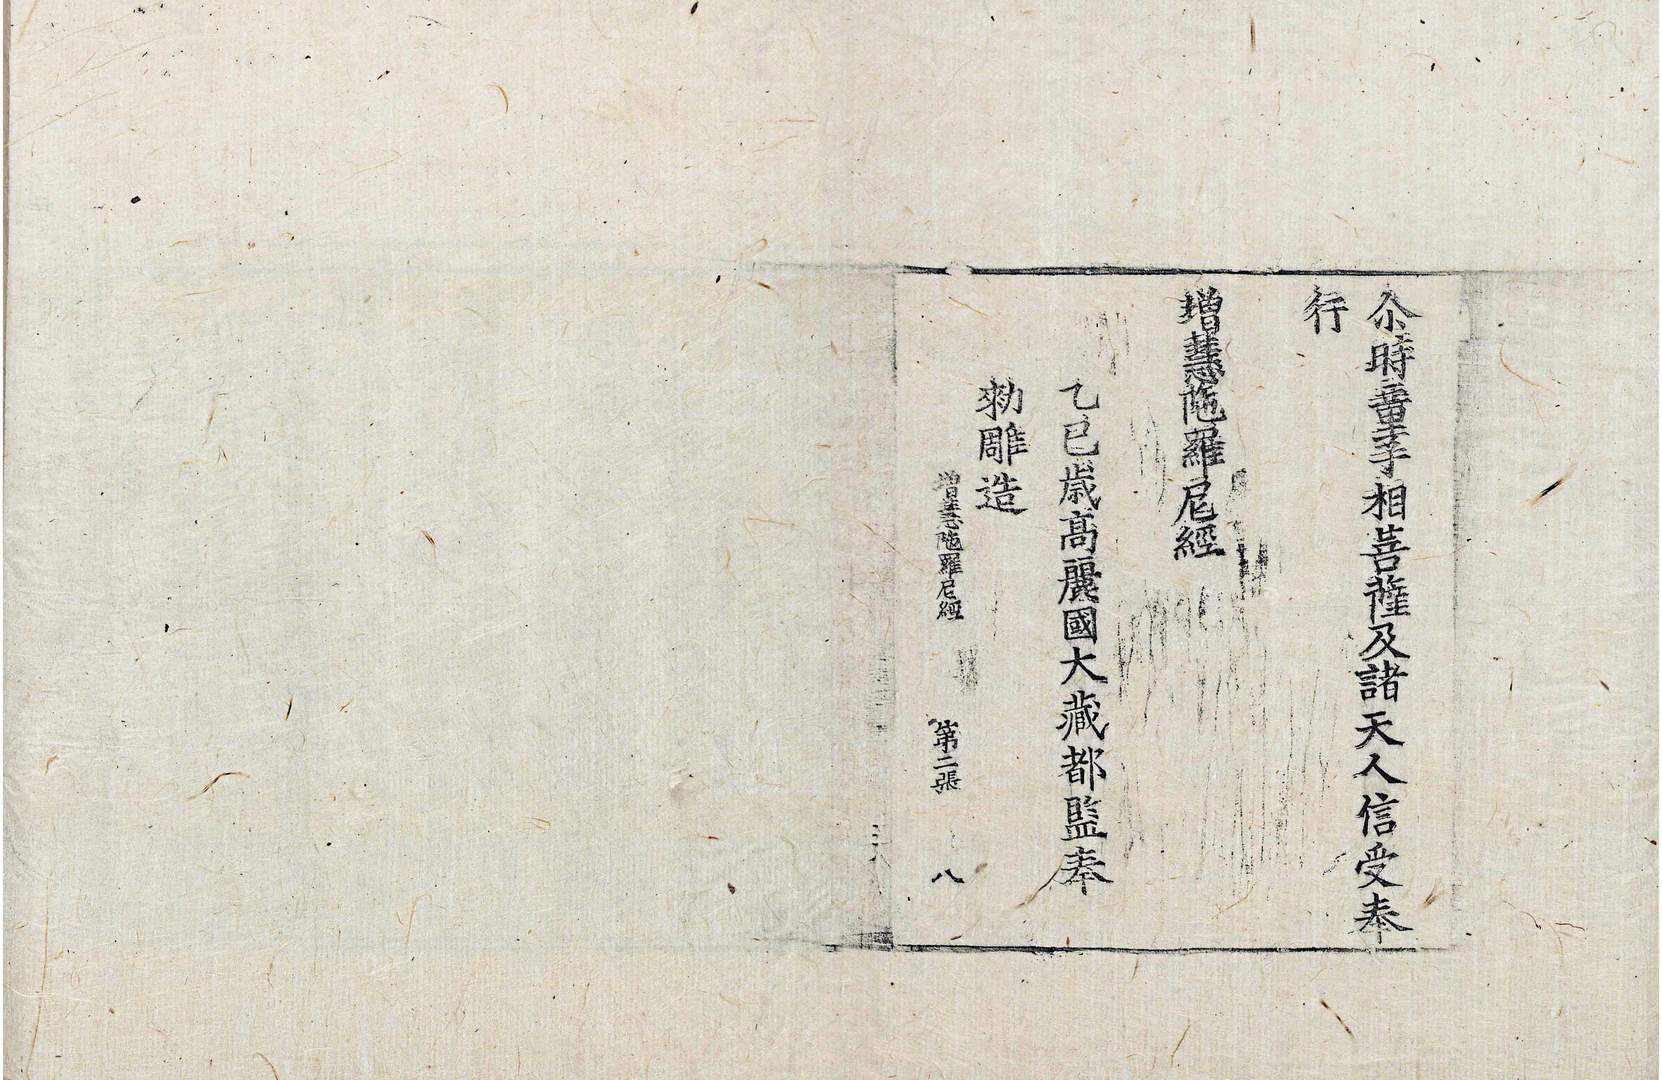 尒時童子相菩薩及諸天人信受奉
行
增慧陁羅尼經
乙巳歳高麗國大藏都監奉
勑雕造
增慧陁羅尼經 第二張 八